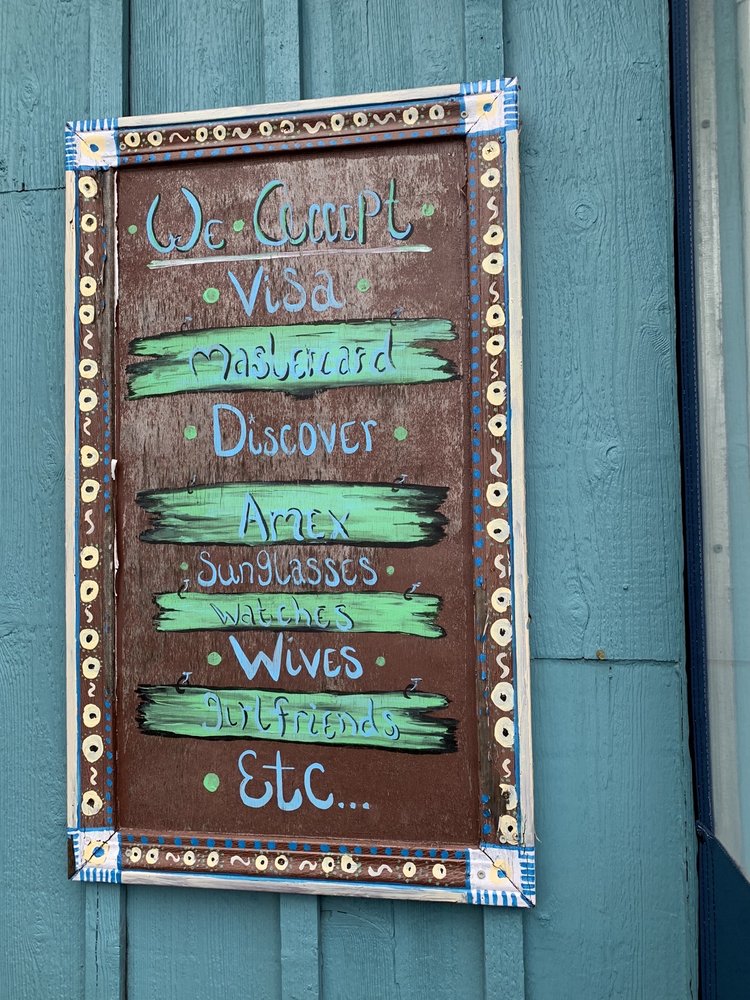 We Accept
Visa
Mastercard
Discover
Amex
Sunglasses
Watches
Wives
Girlfriends
Etc...